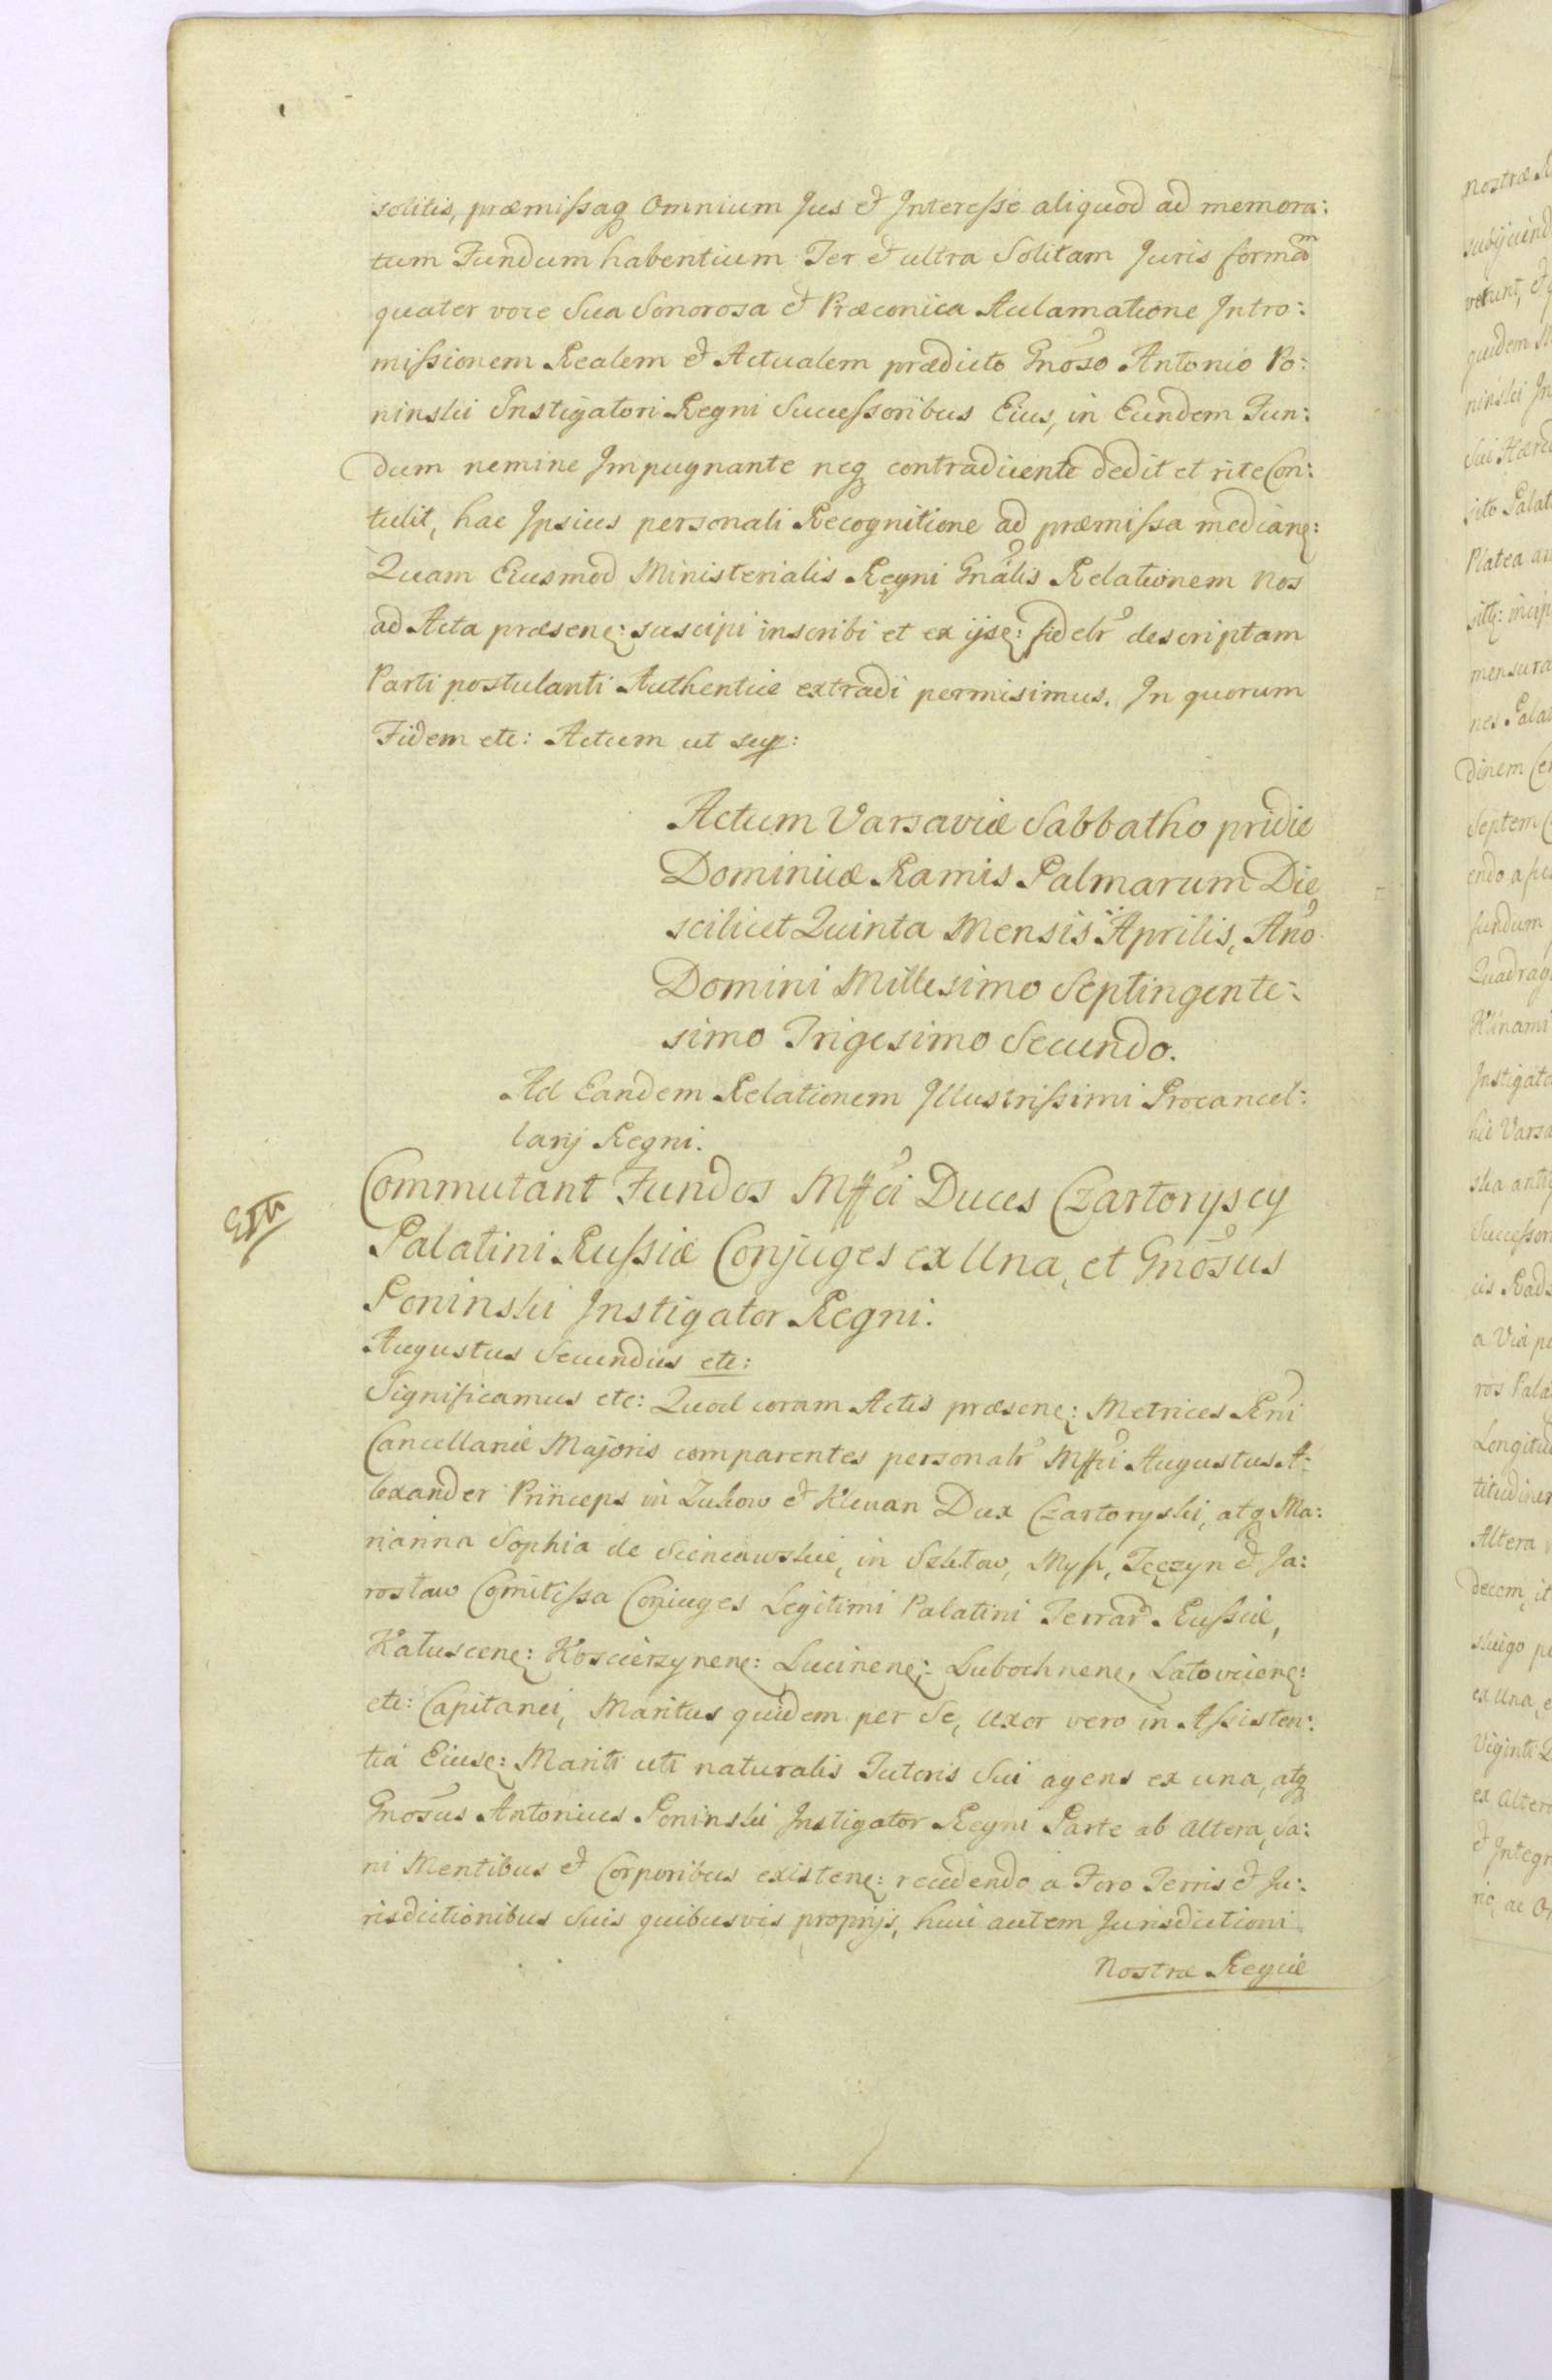 solitis, præmissaq Omnium Jus et Interesse aliquod ad memora:
tum Fundum habentium Ter et ultra Solitam Juris formam
quater voce Sua Sonorosa et Præconica Aclamatione Intro:
missionem Realem et Actualem prædicto Gnoso Antonio Po:
ninski Instigatori Regni Successoribus Eius, in Eundem Fun:
dum nemine Impugnante neq contradicente dedit et rite Con:
tulit, hac Ipsius personali Recognitione ad præmissa median:
Quam Eiusmod Ministerialis Regni Gnalis Relationem nos
ad Acta præsen: suscipi inscribi et ex ijs: fidelr descriptam
Parti postulanti Authentice extradi permisimus. In quorum
Fidem etc: Actum ut sup:
Actum Varsaviæ Sabbatho pridie
Dominicæ Ramis Palmarum Die
scilicet Quinta Mensis Aprilis, Ano
Domini Millesimo Septingente:
simo Trigesimo Secundo.
Ad Eandem Relationem Illustrissimi Procancel:
larij Regni.
Commutant Fundos Mffci Duces Czartoryscy
Palatini Russiæ Conjuges ex Una, et Gnosus
Poninski Instigator Regni.
Augustus Secundus etc:
Significamus etc: Quod coram Actis præsen: Metrices Rni
Cancellariæ Majoris comparentes personalr Mffci Augustus A:
lexander Princeps in Zukow et Klewan Dux Czartoryski, atq Ma:
rianna Sophia de Scieniawskie, in Szkłow, Mysz, Tęczyn et Ja:
rosław Comitissa Coniuges Legitimi Palatini Terrar Russiæ,
Kałuscen: Koscierzynen: Lucinen: Lubochnen, Latovicien:
etc: Capitanei, Maritus quidem per Se, Uxor vero in Assisten:
tia Eius: Mariti uti naturalis Tutoris Sui agens ex una, atq
Gnosus Antonius Poninski Instigator Regni Parte ab altera, Sa:
ni Mentibus et Corporibus existen: recedendo a Foro Terris et Ju:
risdictionibus Suis quibusvis proprijs, huic autem Jurisdictioni
Nostræ Regiæ